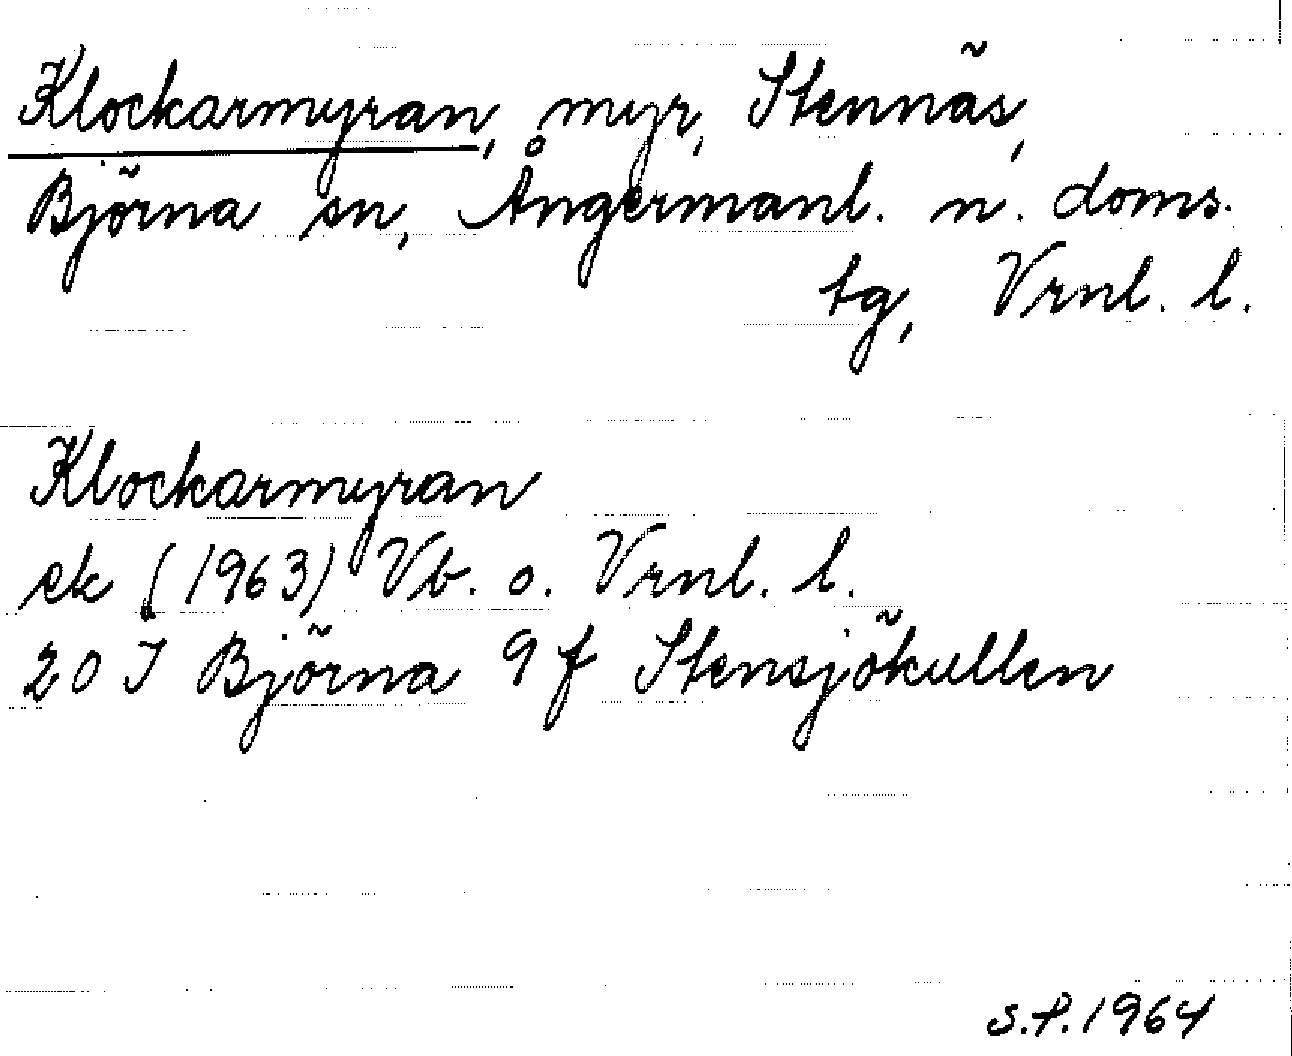 Klockarmyran, myr, Stennäs,
Björna sn, Ångermanl. n. doms.
tg, Vrnl. l.
Klockarmyran
ek (1963) Vb. o. Vrnl. l.
20 J Björna 9 f Stensjökullen
S.P. 1964